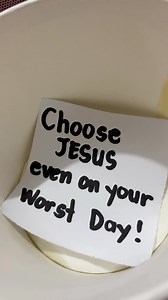 Choose
JESUS
even on your
Worst Day!